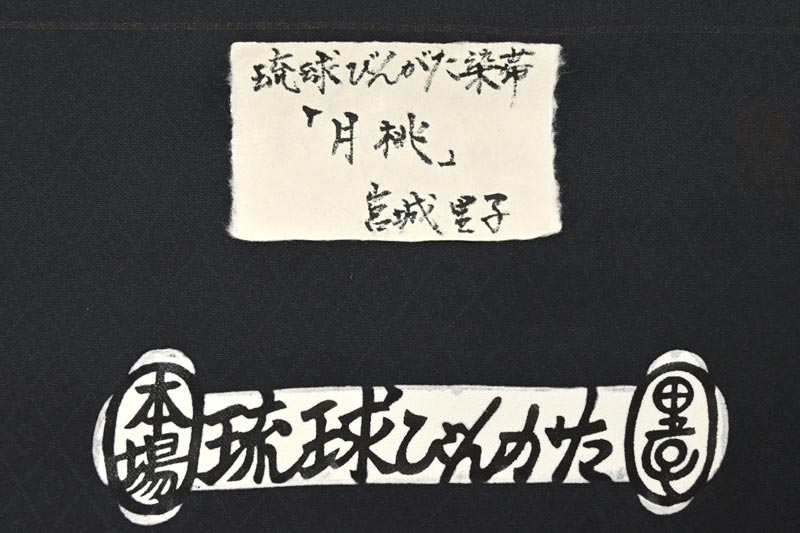 琉球びんがた染帯
「月桃」
宮城里子
本場
琉球びんがた
里子